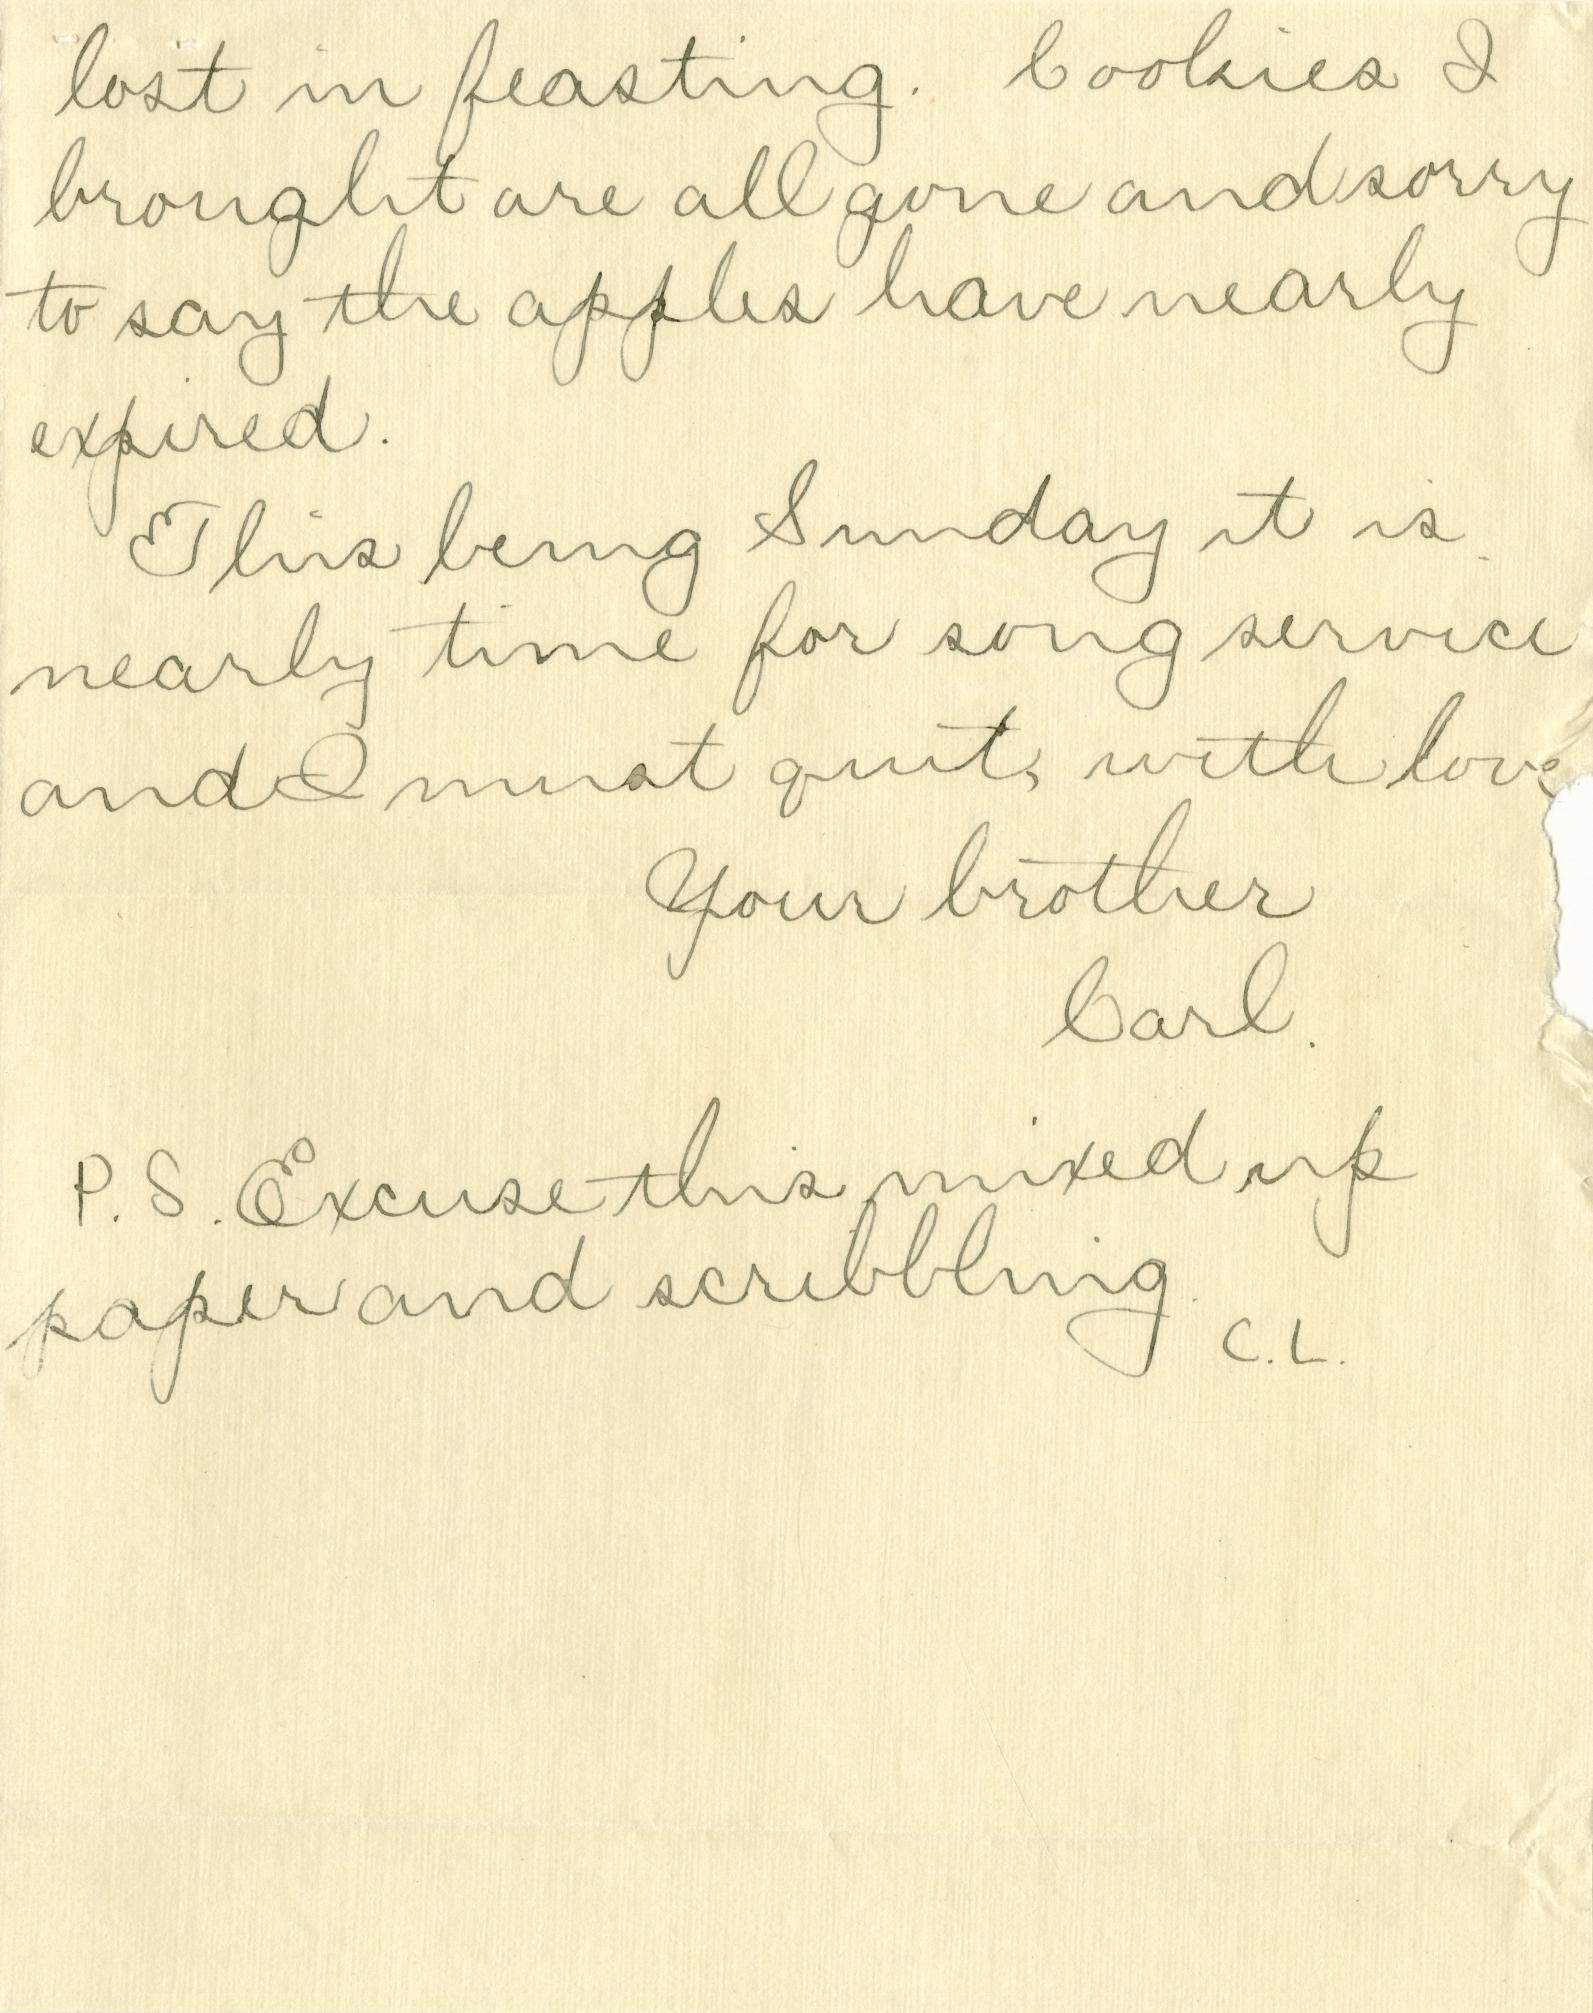 lost in feasting. Cookies I
brought are all gone and sorry
to say the apples have nearly
expired.
This being Sunday it is
nearly time for song service
and I must quit, with love
Your brother
Carl.
P.S. Excuse this mixed up
paper and scribbling
C.L.